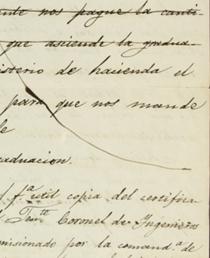 nos pague la canti-
que asciende la gradua-
isterio de hacienda el
para que nos mande
le
aduacion.
copia del certifica
Tente Coronel de Ingenieros
misionado por la comanda. de